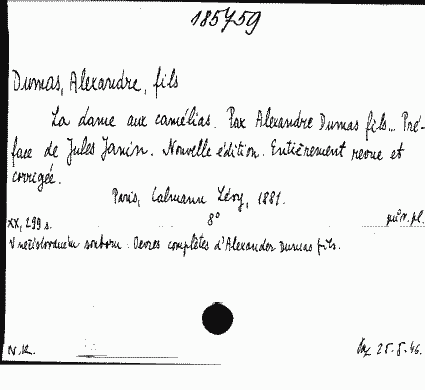 185759
Dumas, Alexandre, fils
La dame aux camélias. Par Alexandre Dumas fils... Pré-
face de Jules Janin. Nouvelle édition. Entièrement revue et
corrigée.
Paris, Calmann Lévy, 1881.
xx, 299 s. 8°
V nečíslovaném souboru: Oevres complètes d'Alexandre Dumas fils.
N.K. 25.5.46.